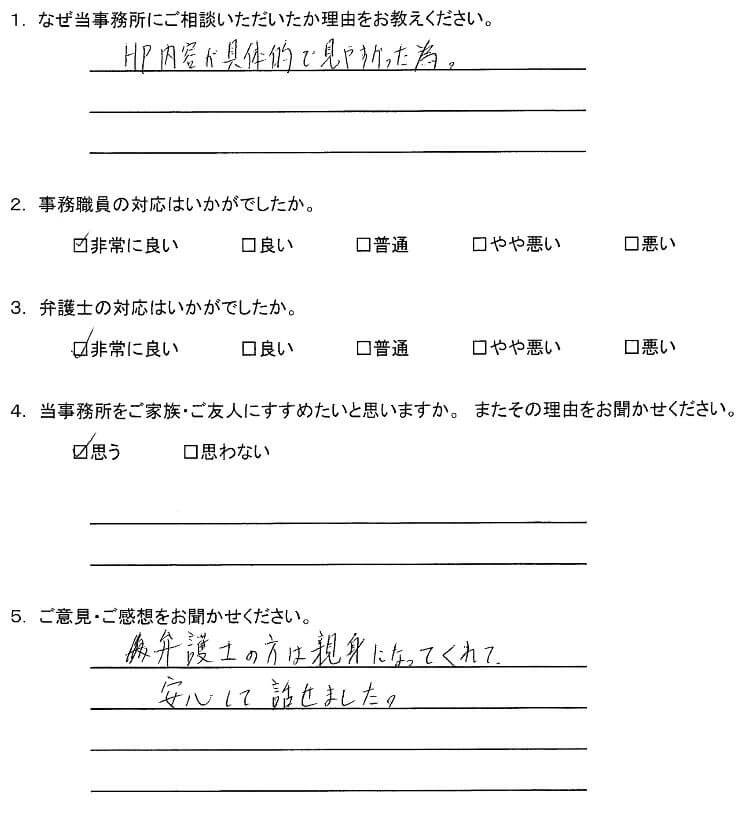 1. なぜ当事務所にご相談いただいたか理由をお教えください。
HP内容が具体的で見やすかった為。
2. 事務職員の対応はいかがでしたか。
☑非常に良い □良い □普通 □やや悪い □悪い
3. 弁護士の対応はいかがでしたか。
☑非常に良い □良い □普通 □やや悪い □悪い
4. 当事務所をご家族・ご友人にすすめたいと思いますか。 またその理由をお聞かせください。
☑思う □思わない
5. ご意見・ご感想をお聞かせください。
弁護士の方は親身になってくれて、
安心して話せました。